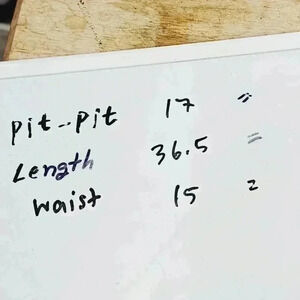 Pit--Pit 17 "
Length 36.5 =
Waist 15 =